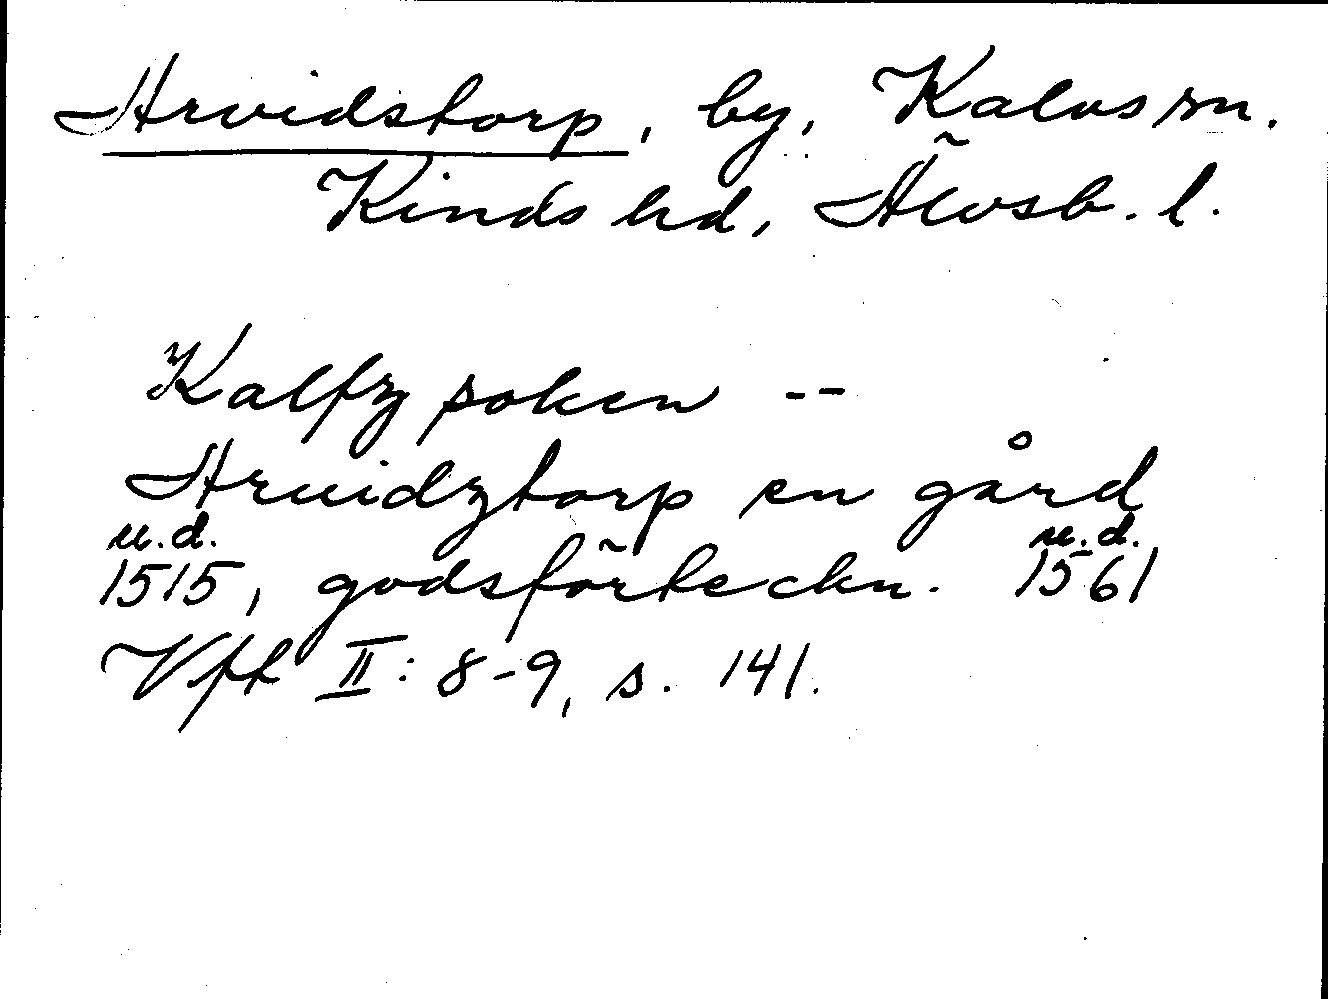 Arvidstorp, by, Kalvs sn.
Kinds hd, Älvsb. l.
Kalfz soken --
Aruidztorp en gård
u.d. u.d.
1515, godsförteckn. 1561
Vft II: 8-9, s. 141.